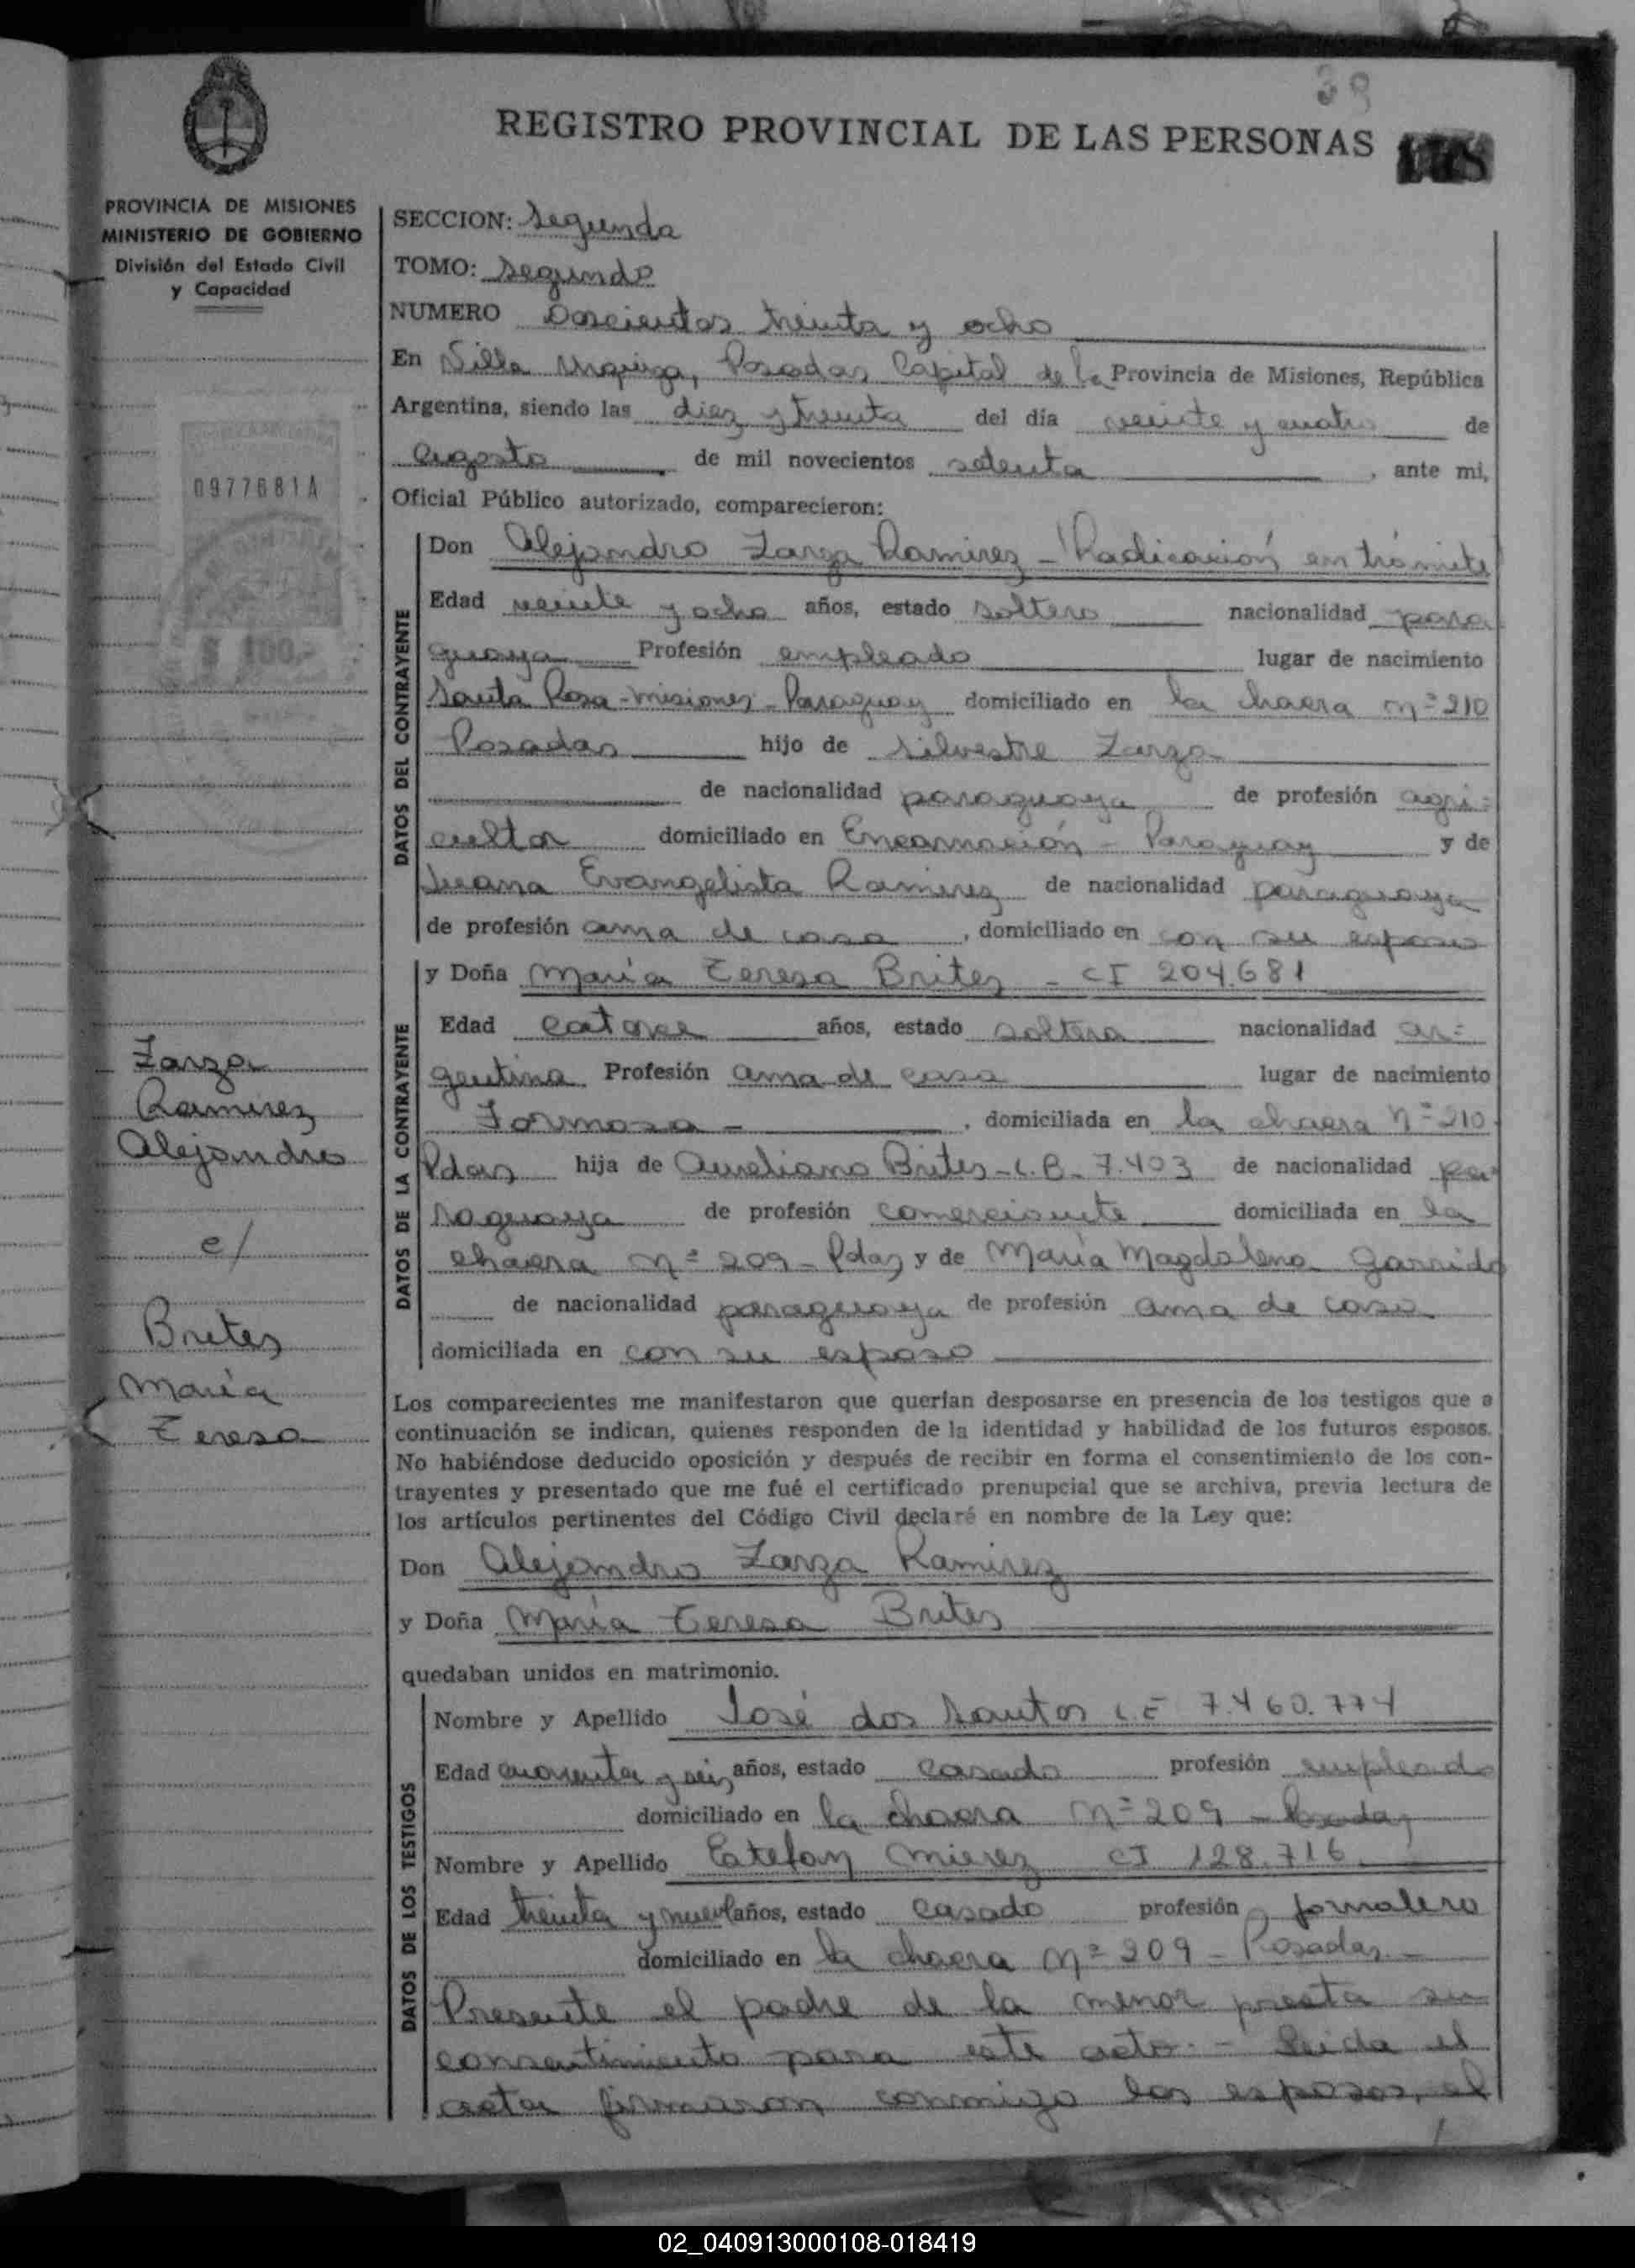 39
REGISTRO PROVINCIAL DE LAS PERSONAS
PROVINCIA DE MISIONES
MINISTERIO DE GOBIERNO
División del Estado Civil
y Capacidad
0977681A
$ 100.-
Zarza
Ramirez
Alejandro
c/
Britez
María
Teresa
SECCION: Segunda
TOMO: Segundo
NUMERO Doscientos treinta y ocho
En Villa Urquiza, Posadas Capital de la Provincia de Misiones, República
Argentina, siendo las diez y treinta del día veinte y cuatro de
Agosto de mil novecientos setenta, ante mi,
Oficial Público autorizado, comparecieron:
DATOS DEL CONTRAYENTE
Don Alejandro Zarza Ramirez - Radicación en trámite
Edad veinte y ocho años, estado soltero nacionalidad para
guaya Profesión empleado lugar de nacimiento
Santa Rosa - Misiones - Paraguay domiciliado en la chacra nº 210
Posadas hijo de Silvestre Zarza
de nacionalidad paraguaya de profesión agri=
cultor domiciliado en Encarnación - Paraguay y de
Juana Evangelista Ramirez de nacionalidad paraguaya
de profesión ama de casa, domiciliado en con su esposo
DATOS DE LA CONTRAYENTE
y Doña María Teresa Britez - CI 204.681
Edad catorce años, estado soltera nacionalidad ar=
gentina Profesión ama de casa lugar de nacimiento
Formosa -, domiciliada en la chacra nº 210
Pdas hija de Aureliano Britez - C.B. 7.403 de nacionalidad pa
raguaya de profesión comerciante domiciliada en la
chacra nº 209 - Pdas y de María Magdalena Garrido
de nacionalidad paraguaya de profesión ama de casa
domiciliada en con su esposo
Los comparecientes me manifestaron que querían desposarse en presencia de los testigos que a
continuación se indican, quienes responden de la identidad y habilidad de los futuros esposos.
No habiéndose deducido oposición y después de recibir en forma el consentimiento de los con-
trayentes y presentado que me fué el certificado prenupcial que se archiva, previa lectura de
los artículos pertinentes del Código Civil declaré en nombre de la Ley que:
Don Alejandro Zarza Ramirez
y Doña María Teresa Britez
quedaban unidos en matrimonio.
DATOS DE LOS TESTIGOS
Nombre y Apellido José dos Santos L.E 7.460.774
Edad cuarenta y seis años, estado casado profesión empleado
domiciliado en la chacra nº 209 - Posadas
Nombre y Apellido Estefan Mierez CI 128.716
Edad treinta y nueve años, estado casado profesión jornalero
domiciliado en la chacra nº 209 - Posadas -
Presente el padre de la menor presta su
consentimiento para este acto. - Leida el
acta firmaron conmigo los esposos, el
02_040913000108-018419